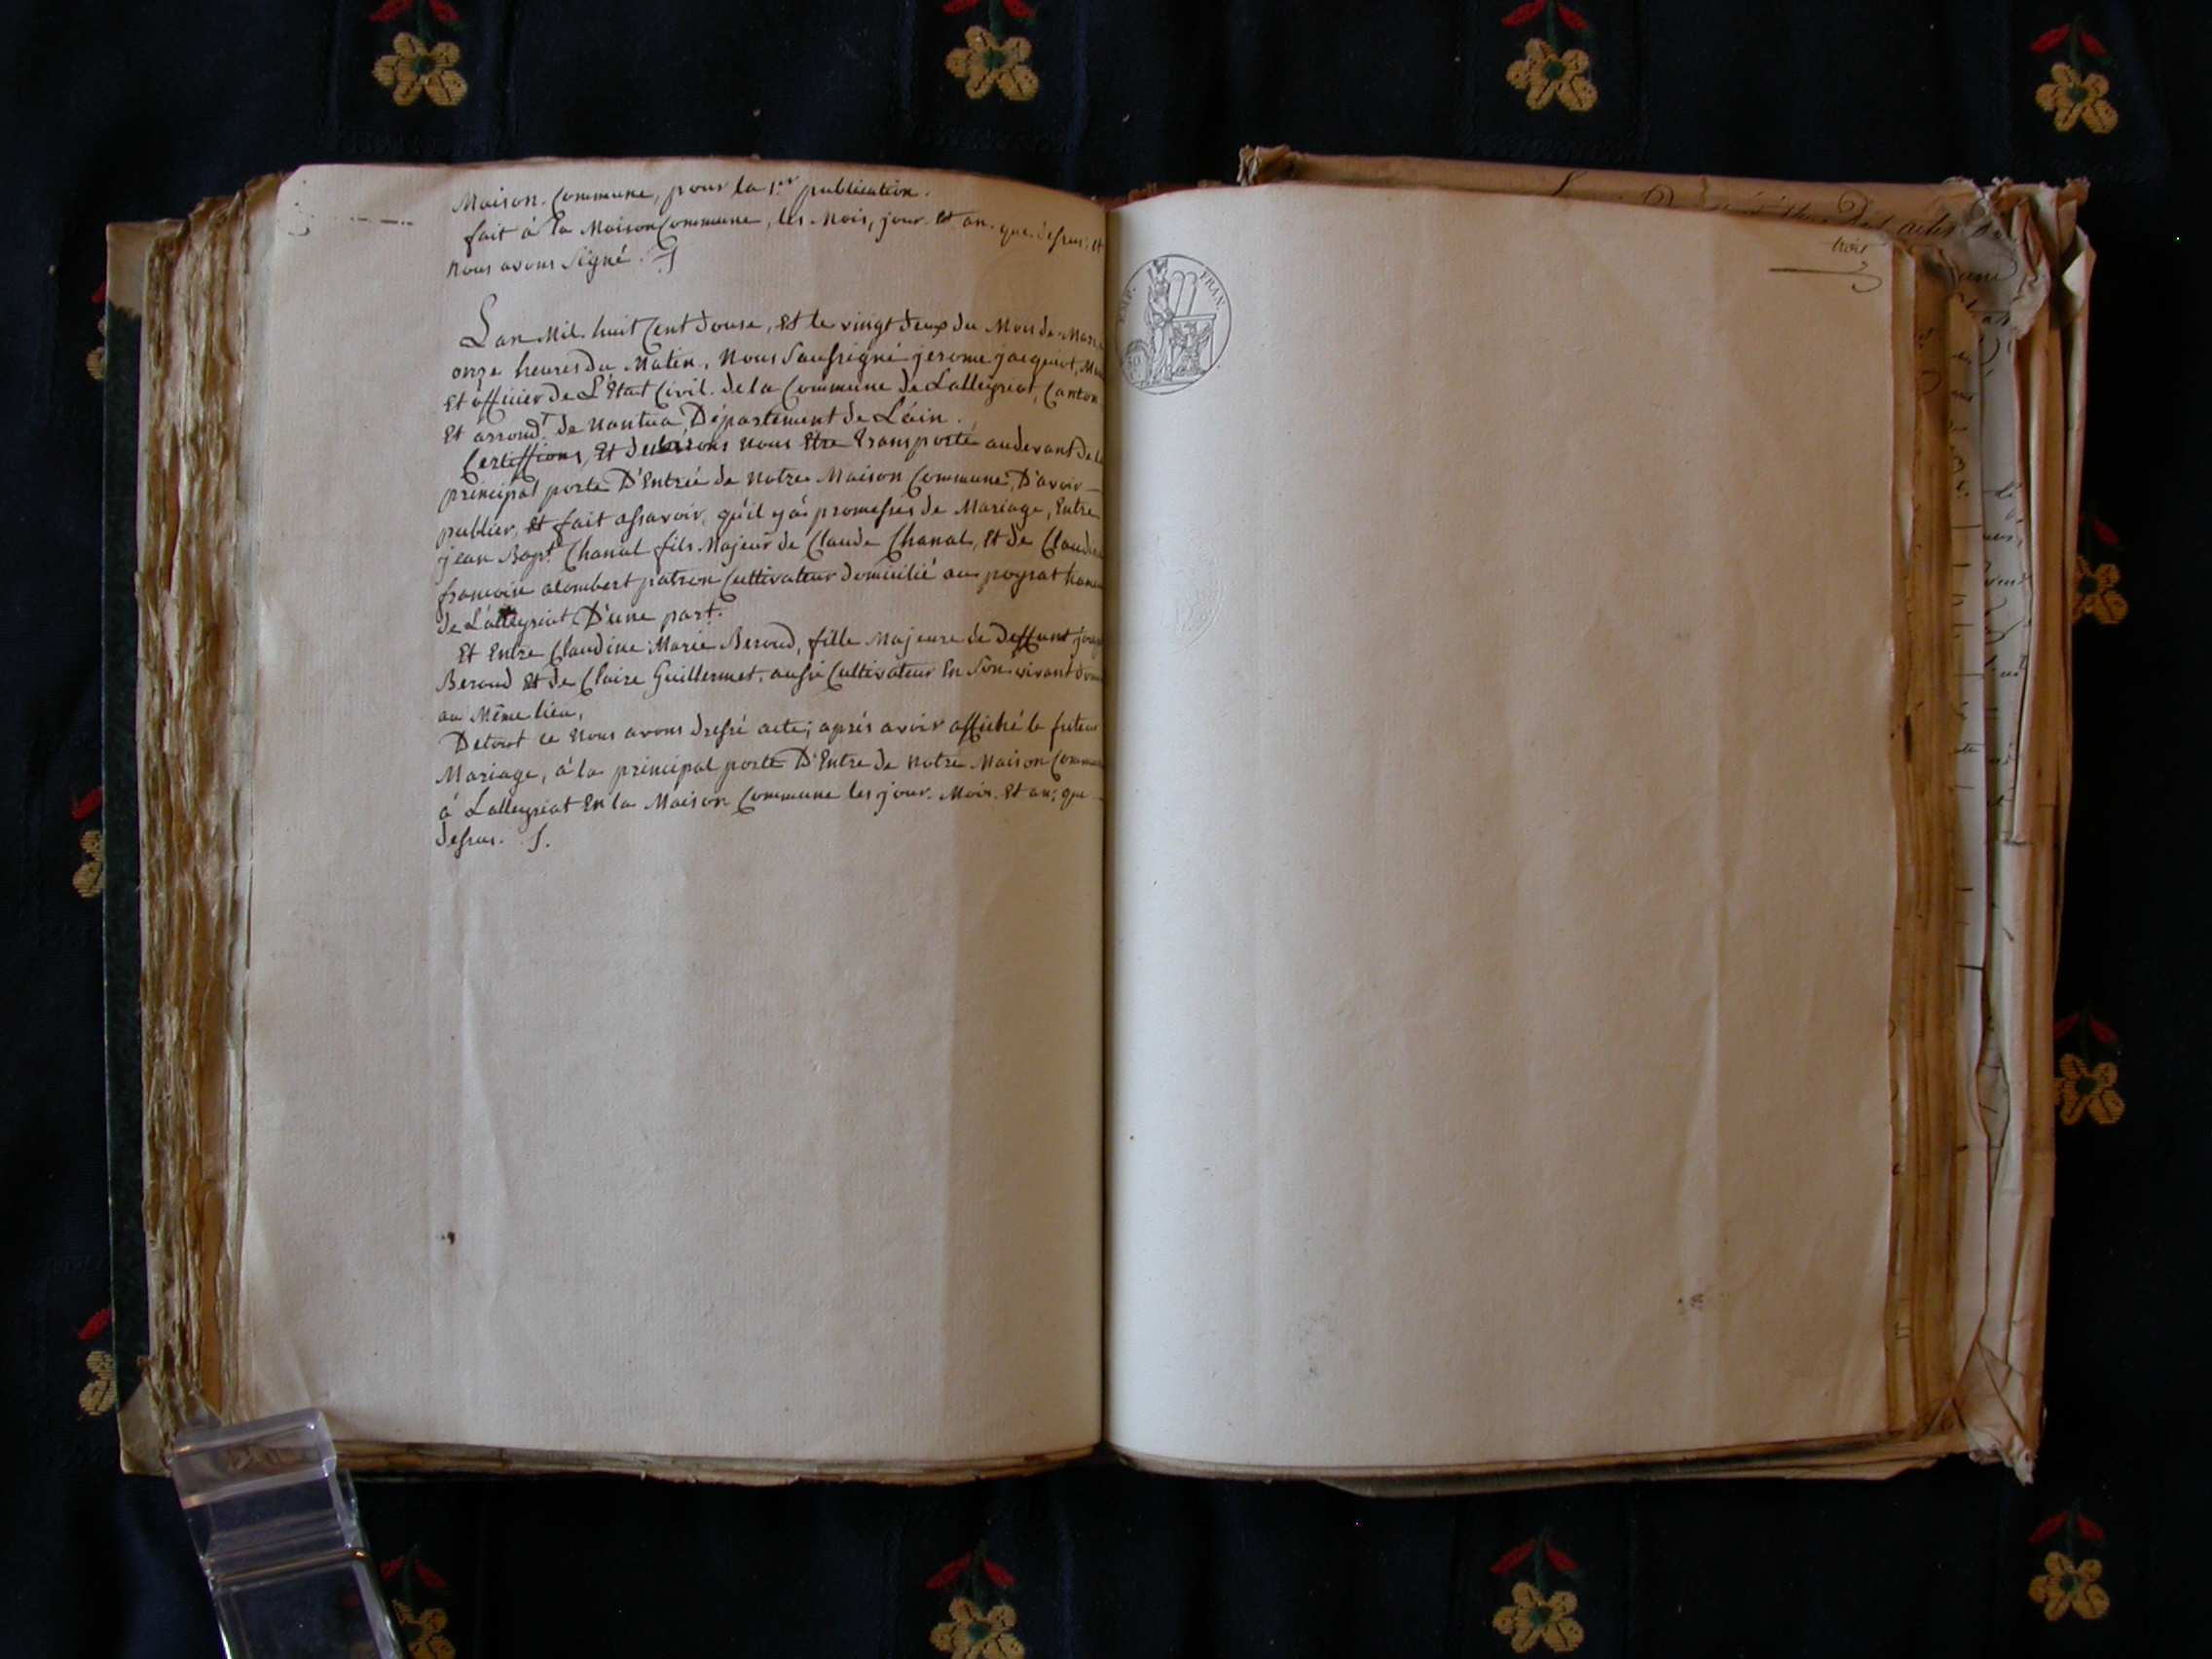 Maison. Commune, pour la 1.er publication.
fait à la Maison Commune, les Mois, jour. Et an. que. dessus; et
Nous avons Signé.
L'an Mil. huit Cent douse, Et le vingt deux du Mois de Mars,
onze heures du Matin, Nous Soussigné jerome jacquiot,
Et officier de L'Etat Civil. de la Commune de Lalleyriat, Canton
Et arrond.t de Nantua, Département de L'áin.
Certiffions, Et declarons nous Etre transporté audevant de la
principal porte D'Entrée de notre Maison Commune, D'avoir
publier, Et fait assavoir, qu'il y'a promesses de Mariage, Entre
jean Bapt.e Chanal fils Majeur de Claude Chanal, Et de Claudine
francoise alombert patron Cultivateur domicilié au poysat hameau
de L'alleyriat D'une part.
Et Entre Claudine Marie Beroud, fille Majeure de deffunt joseph
Beroud Et de Claire Guillermet, aussi Cultivateur En Son vivant
au Même lieu,
Detout ce Nous avons dressé acte; aprés avoir affiché le futeur
Mariage, á la principal porte D'Entre de notre Maison Commune
á Lalleyriat En la Maison Commune les jour. Mois. Et an; que
dessus. S.
EMP. FRAN.
trois